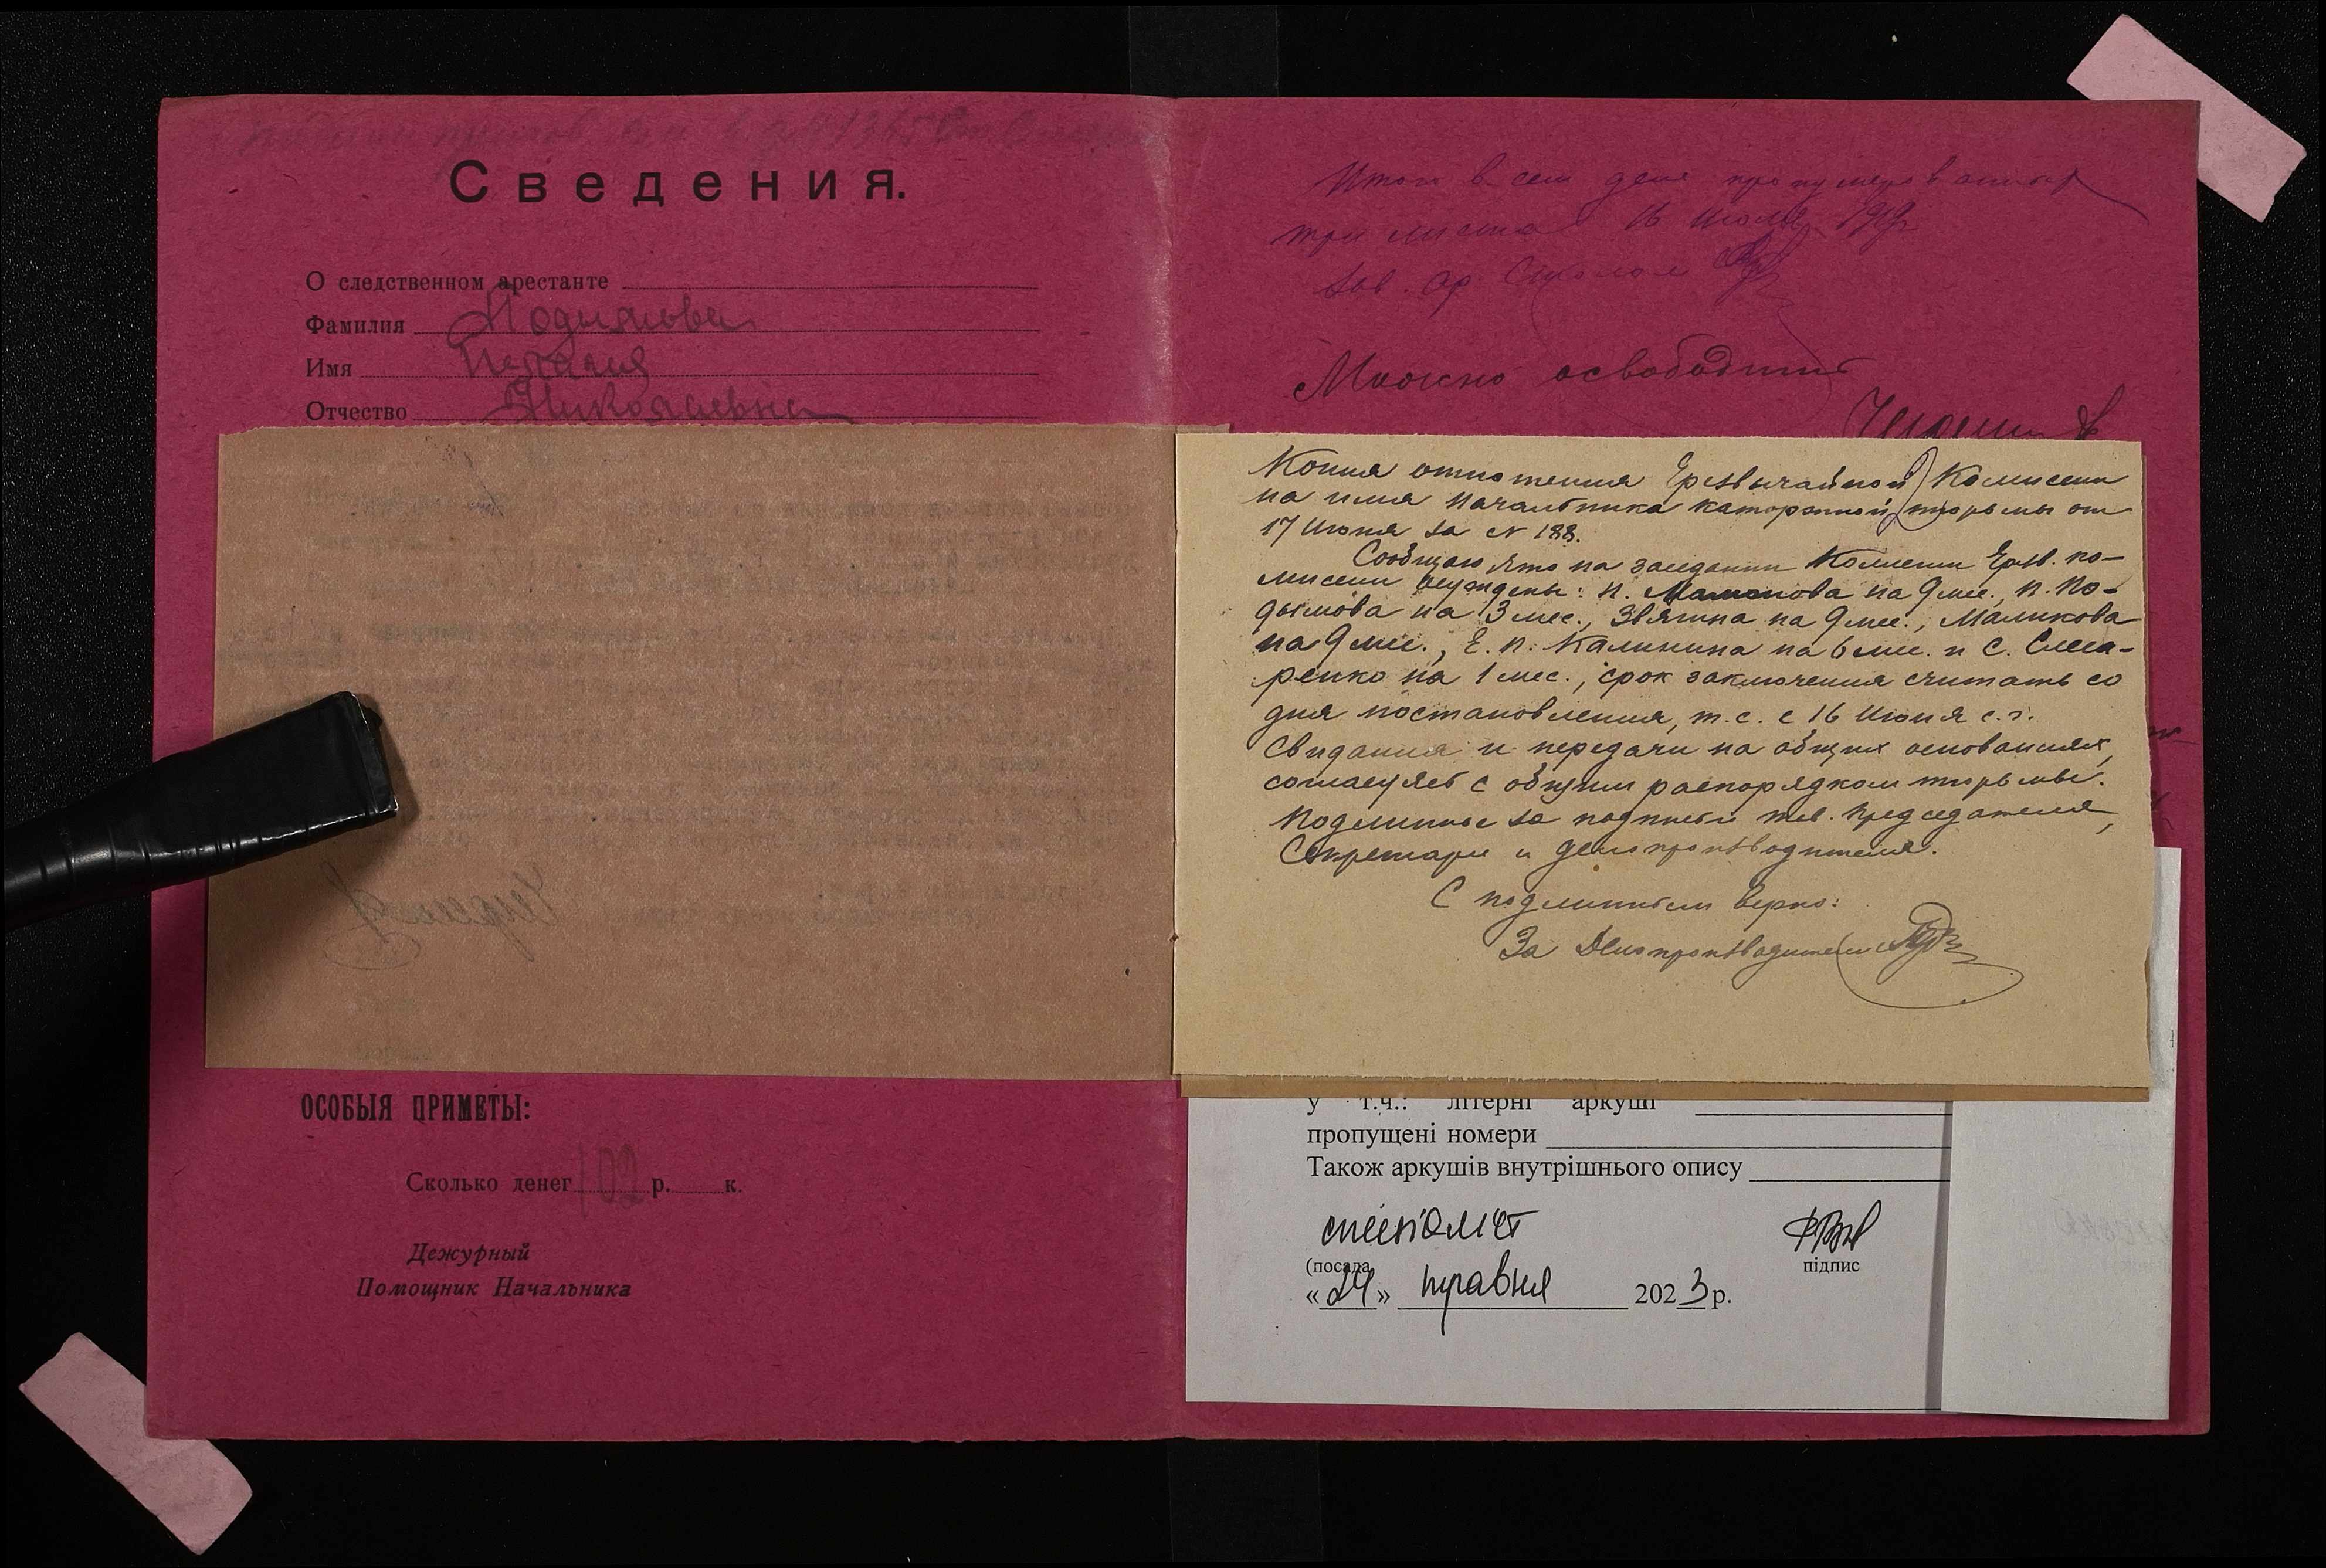 Сведения.
О следственном арестанте
Фамилия Подымова
Имя Пелагия
Отчество Николаевна
ОСОБЫЯ ПРИМЕТЫ:
Сколько денег 102 р. к.
Дежурный
Помощник Начальника
Итого в сем деле пронумеровано
три листа 16 июля 1919
Зав. ар. Столом
Можно освободить
Копия отношения Чрезвычайной Комиссии
на имя Начальника каторжной тюрьмы от
17 Июня за N 188.
Сообщаю, что на заседании Коллегии Чрезв. ко-
миссии осуждены: Н. Мамонова на 9 мес., П. По-
дымова на 3 мес., Звягина на 9 мес., Маликова
на 9 мес., Е. П. Калинина на 6 мес. и С. Слеса-
ренко на 1 мес., срок заключения считать со
дня постановления, т.е. с 16 Июня с.г.
Свидания и передачи на общих основаниях,
согласуясь с общим распорядком тюрьмы.
Подлинное за подписью тов. Председателя,
Секретаря и делопроизводителя.
С подлинным верно:
За Делопроизводителя
у т.ч.: літерні аркуші
пропущені номери
Також аркушів внутрішнього опису
спеціаліст
(посада підпис
«24» травня 2023 р.